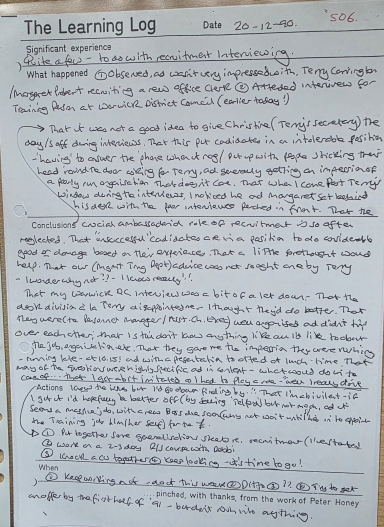 506.
The Learning Log Date 20-12-90.
Significant experience
Quite a few - to do with recruitment interviewing.
What happened ① Observed, and wasn't very impressed with, Terry Carrington
/Margaret recruiting a new Office Clerk ② Attended interview for
Training Person at Warwick District Council (earlier today!)
→ That it was not a good idea to give Christine (Terry's secretary) the
day/s off during interviews. That this put candidates in an intolerable position
- having to answer the phone when it rang/put up with people sticking their
head round the door asking for Terry, and generally getting an impression of
a poorly run organisation that doesn't care. That when I came past Terry's
window during the interviews, I noticed he and Margaret sat behind
his desk with the poor interviewees perched in front. That the
Conclusions crucial ambassadorial role of recruitment is so often
neglected. That unsuccessful candidates are in a position to do considerable
good or damage based on their experiences. That a little forethought would
help. That our (Mgmt Trng Dept) advice was not sought once by Terry
- I wonder why not?? - I know really!!
That my Warwick DC interview was a bit of a let down - That the
desk division à la Terry disappointed me - I thought they'd do better. That
they were (the Personnel manager/ ) well organised and didn't trip
over each other; that I still don't know anything like as I'd like to about
the job, organisation etc. That they gave me the impression they were rushing
- running late - at 10.15! and with a presentation to attend at lunch-time. That
many of the questions were highly specific and in context - what would do in to
That I got a bit irritated and had to play a role - now I really don't
Actions know the but I'll go about finding by. - That I'm ambivalent - if
I got it I'd hopefully be better off (by being ) but not again, and it
seems a massive job, with a new Boss due, soon (why not wait until he is to appoint
the Training job him/her self) for the £.
→ ① Put together some generalisation re recruitment (I've started
② Work on a 2-3 day R/S course with Robbi
③ Knock a CV together ④ Keep looking - it's time to go!
When
① Keep working on it - about this week ② Ditto ③ ?? ④ Try to get
pinched, with thanks, from the work of Peter Honey
an offer by the first half of '91 - but don't rush into anything.